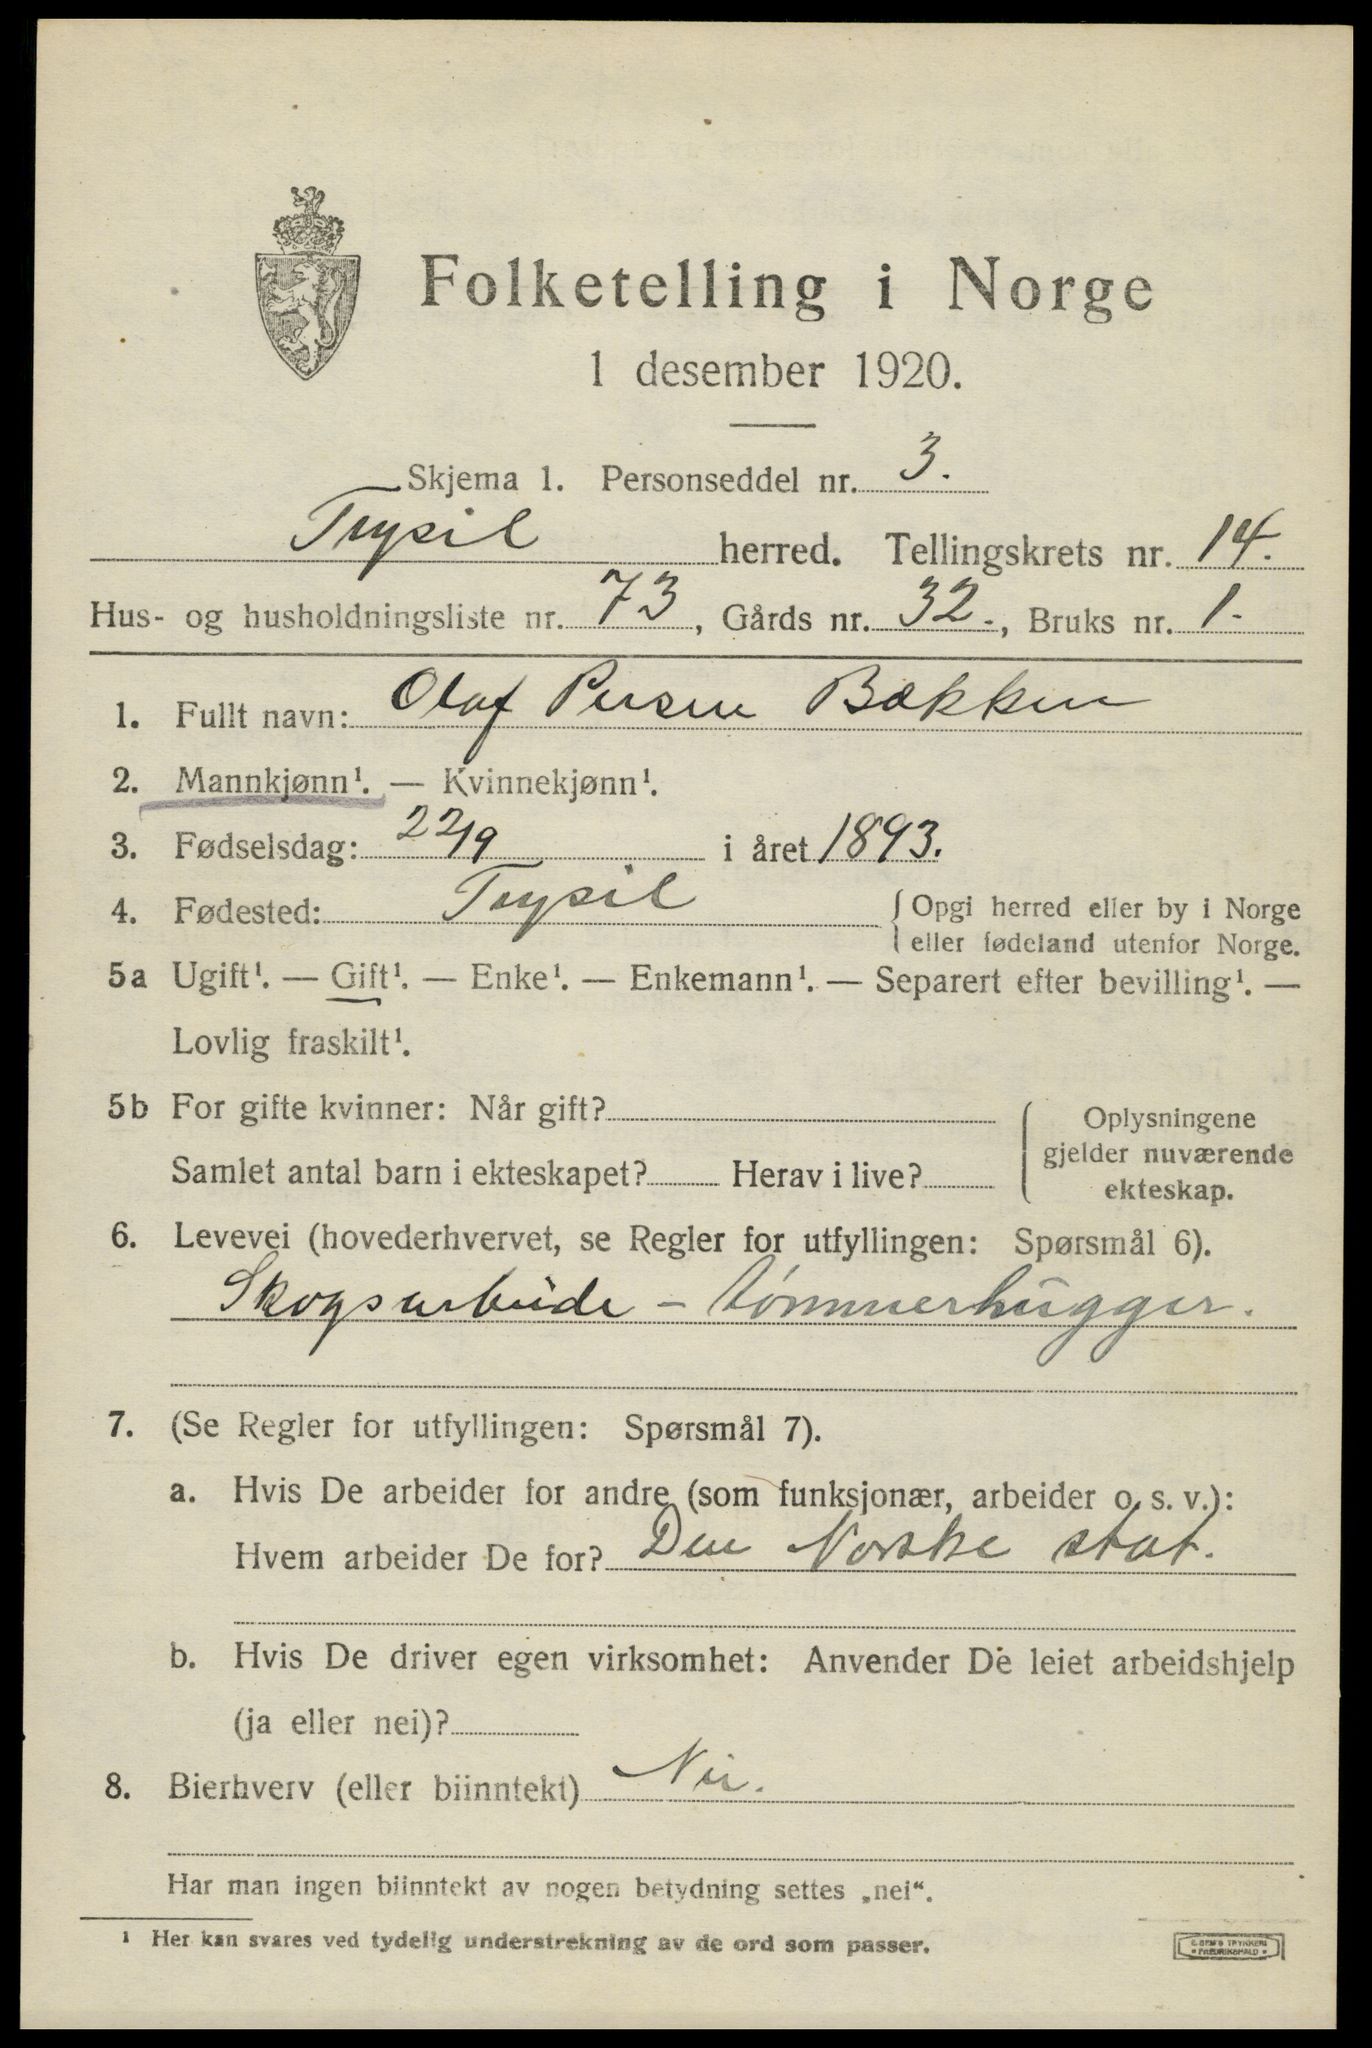 Folketelling i Norge
1 desember 1920.
Skjema 1. Personseddel nr. 3.
Trysil herred. Tellingskrets nr. 14.
Hus- og husholdningsliste nr. 73, Gårds nr. 32., Bruks nr. 1.
1. Fullt navn: Olaf Persen Bækken
2. Mannkjønn¹. — Kvinnekjønn¹.
3. Fødselsdag: 22/9 i året 1893.
4. Fødested: Trysil { Opgi herred eller by i Norge
eller fødeland utenfor Norge.
5a Ugift¹. — Gift¹. — Enke¹. — Enkemann¹. — Separert efter bevilling¹. —
Lovlig fraskilt¹.
5b For gifte kvinner: Når gift?
Samlet antal barn i ekteskapet? Herav i live?
Oplysningene
gjelder nuværende
ekteskap.
6. Levevei (hovederhvervet, se Regler for utfyllingen: Spørsmål 6).
Skogsarbeide - tømmerhugger.
7. (Se Regler for utfyllingen: Spørsmål 7).
a. Hvis De arbeider for andre (som funksjonær, arbeider o. s. v.):
Hvem arbeider De for? Den Norske stat.
b. Hvis De driver egen virksomhet: Anvender De leiet arbeidshjelp
(ja eller nei)?
8. Bierhverv (eller biinntekt) Nei.
Har man ingen biinntekt av nogen betydning settes „nei“.
¹ Her kan svares ved tydelig understrekning av de ord som passer.
E. SEM'S TRYKKERI
• FREDRIKSHALD •